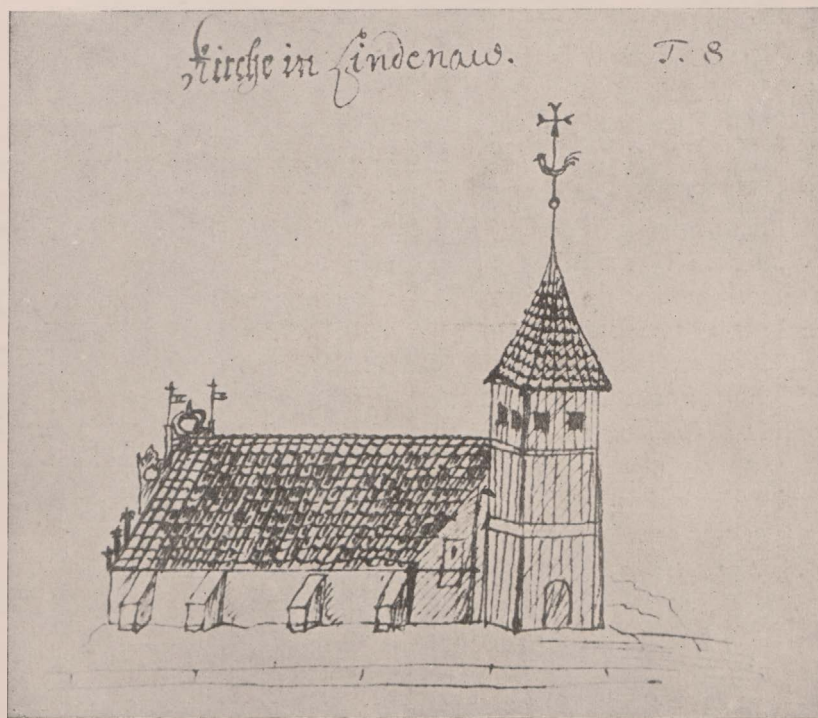 Kirche in Lindenaw. T. 8